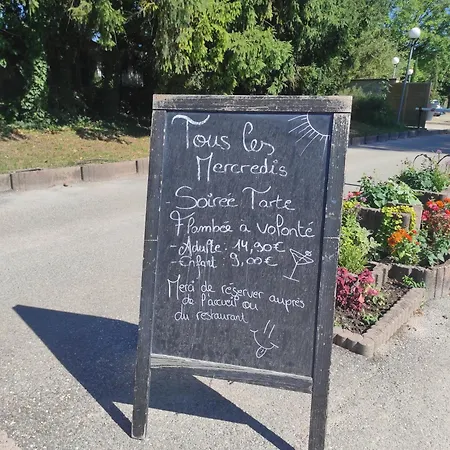 Tous les
Mercredis
Soirée Tarte
Flambée à volonté
- Adulte : 14,90€
- Enfant : 9,00€
Merci de réserver auprés
de l'accueil ou
du restaurant